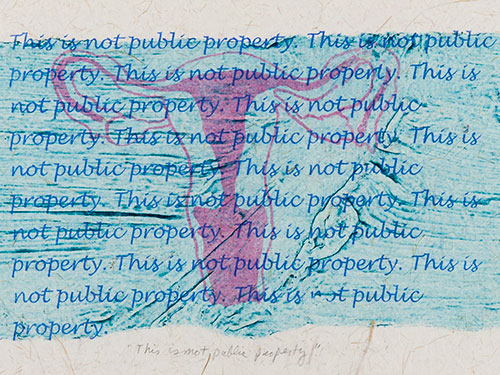 This is not public property. This is not public
property. This is not public property. This is
not public property. This is not public
property. This is not public property. This is
not public property. This is not public
property. This is not public property. This is
not public property. This is not public
property. This is not public property. This is
not public property. This is not public
property.
"This is not public property!"